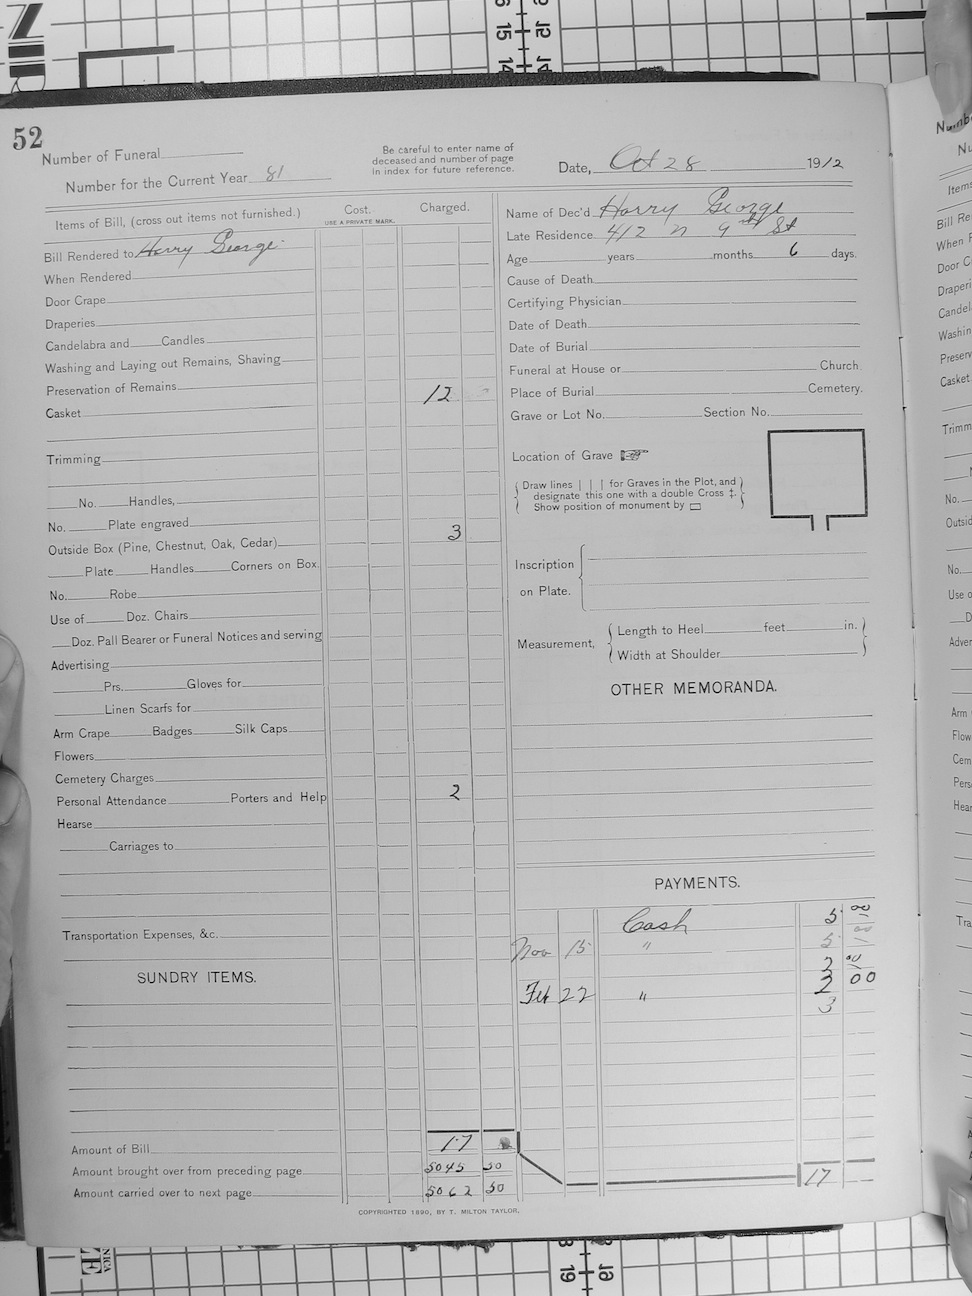 52
Number of Funeral
Number for the Current Year 81
Be careful to enter name of
deceased and number of page
in index for future reference.
Date, Oct 28 1912
Items of Bill, (cross out items not furnished.)
Cost.
USE A PRIVATE MARK.
Charged.
Bill Rendered to Harry George.
When Rendered
Door Crape
Draperies
Candelabra and Candles
Washing and Laying out Remains, Shaving
Preservation of Remains
Casket 12
Trimming
No. Handles,
No. Plate engraved
Outside Box (Pine, Chestnut, Oak, Cedar) 3
Plate Handles Corners on Box.
No. Robe
Use of Doz. Chairs
Doz. Pall Bearer or Funeral Notices and serving
Advertising
Prs. Gloves for
Linen Scarfs for
Arm Crape Badges Silk Caps
Flowers
Cemetery Charges
Personal Attendance Porters and Help 2
Hearse
Carriages to
Transportation Expenses, &c.
SUNDRY ITEMS.
Amount of Bill 17
Amount brought over from preceding page 5045 50
Amount carried over to next page 5062 50
Name of Dec'd Harry George
Late Residence 412 N 9th St
Age years months 6 days.
Cause of Death
Certifying Physician
Date of Death
Date of Burial
Funeral at House or Church.
Place of Burial Cemetery.
Grave or Lot No. Section No.
Location of Grave
Draw lines | | | for Graves in the Plot, and
designate this one with a double Cross ‡.
Show position of monument by
Inscription
on Plate.
Measurement,
Length to Heel feet in.
Width at Shoulder
OTHER MEMORANDA.
PAYMENTS.
Cash 5 00
Nov 15 " 5 00
2 00
Feb 22 " 2 00
3
17
COPYRIGHTED 1890, BY T. MILTON TAYLOR.